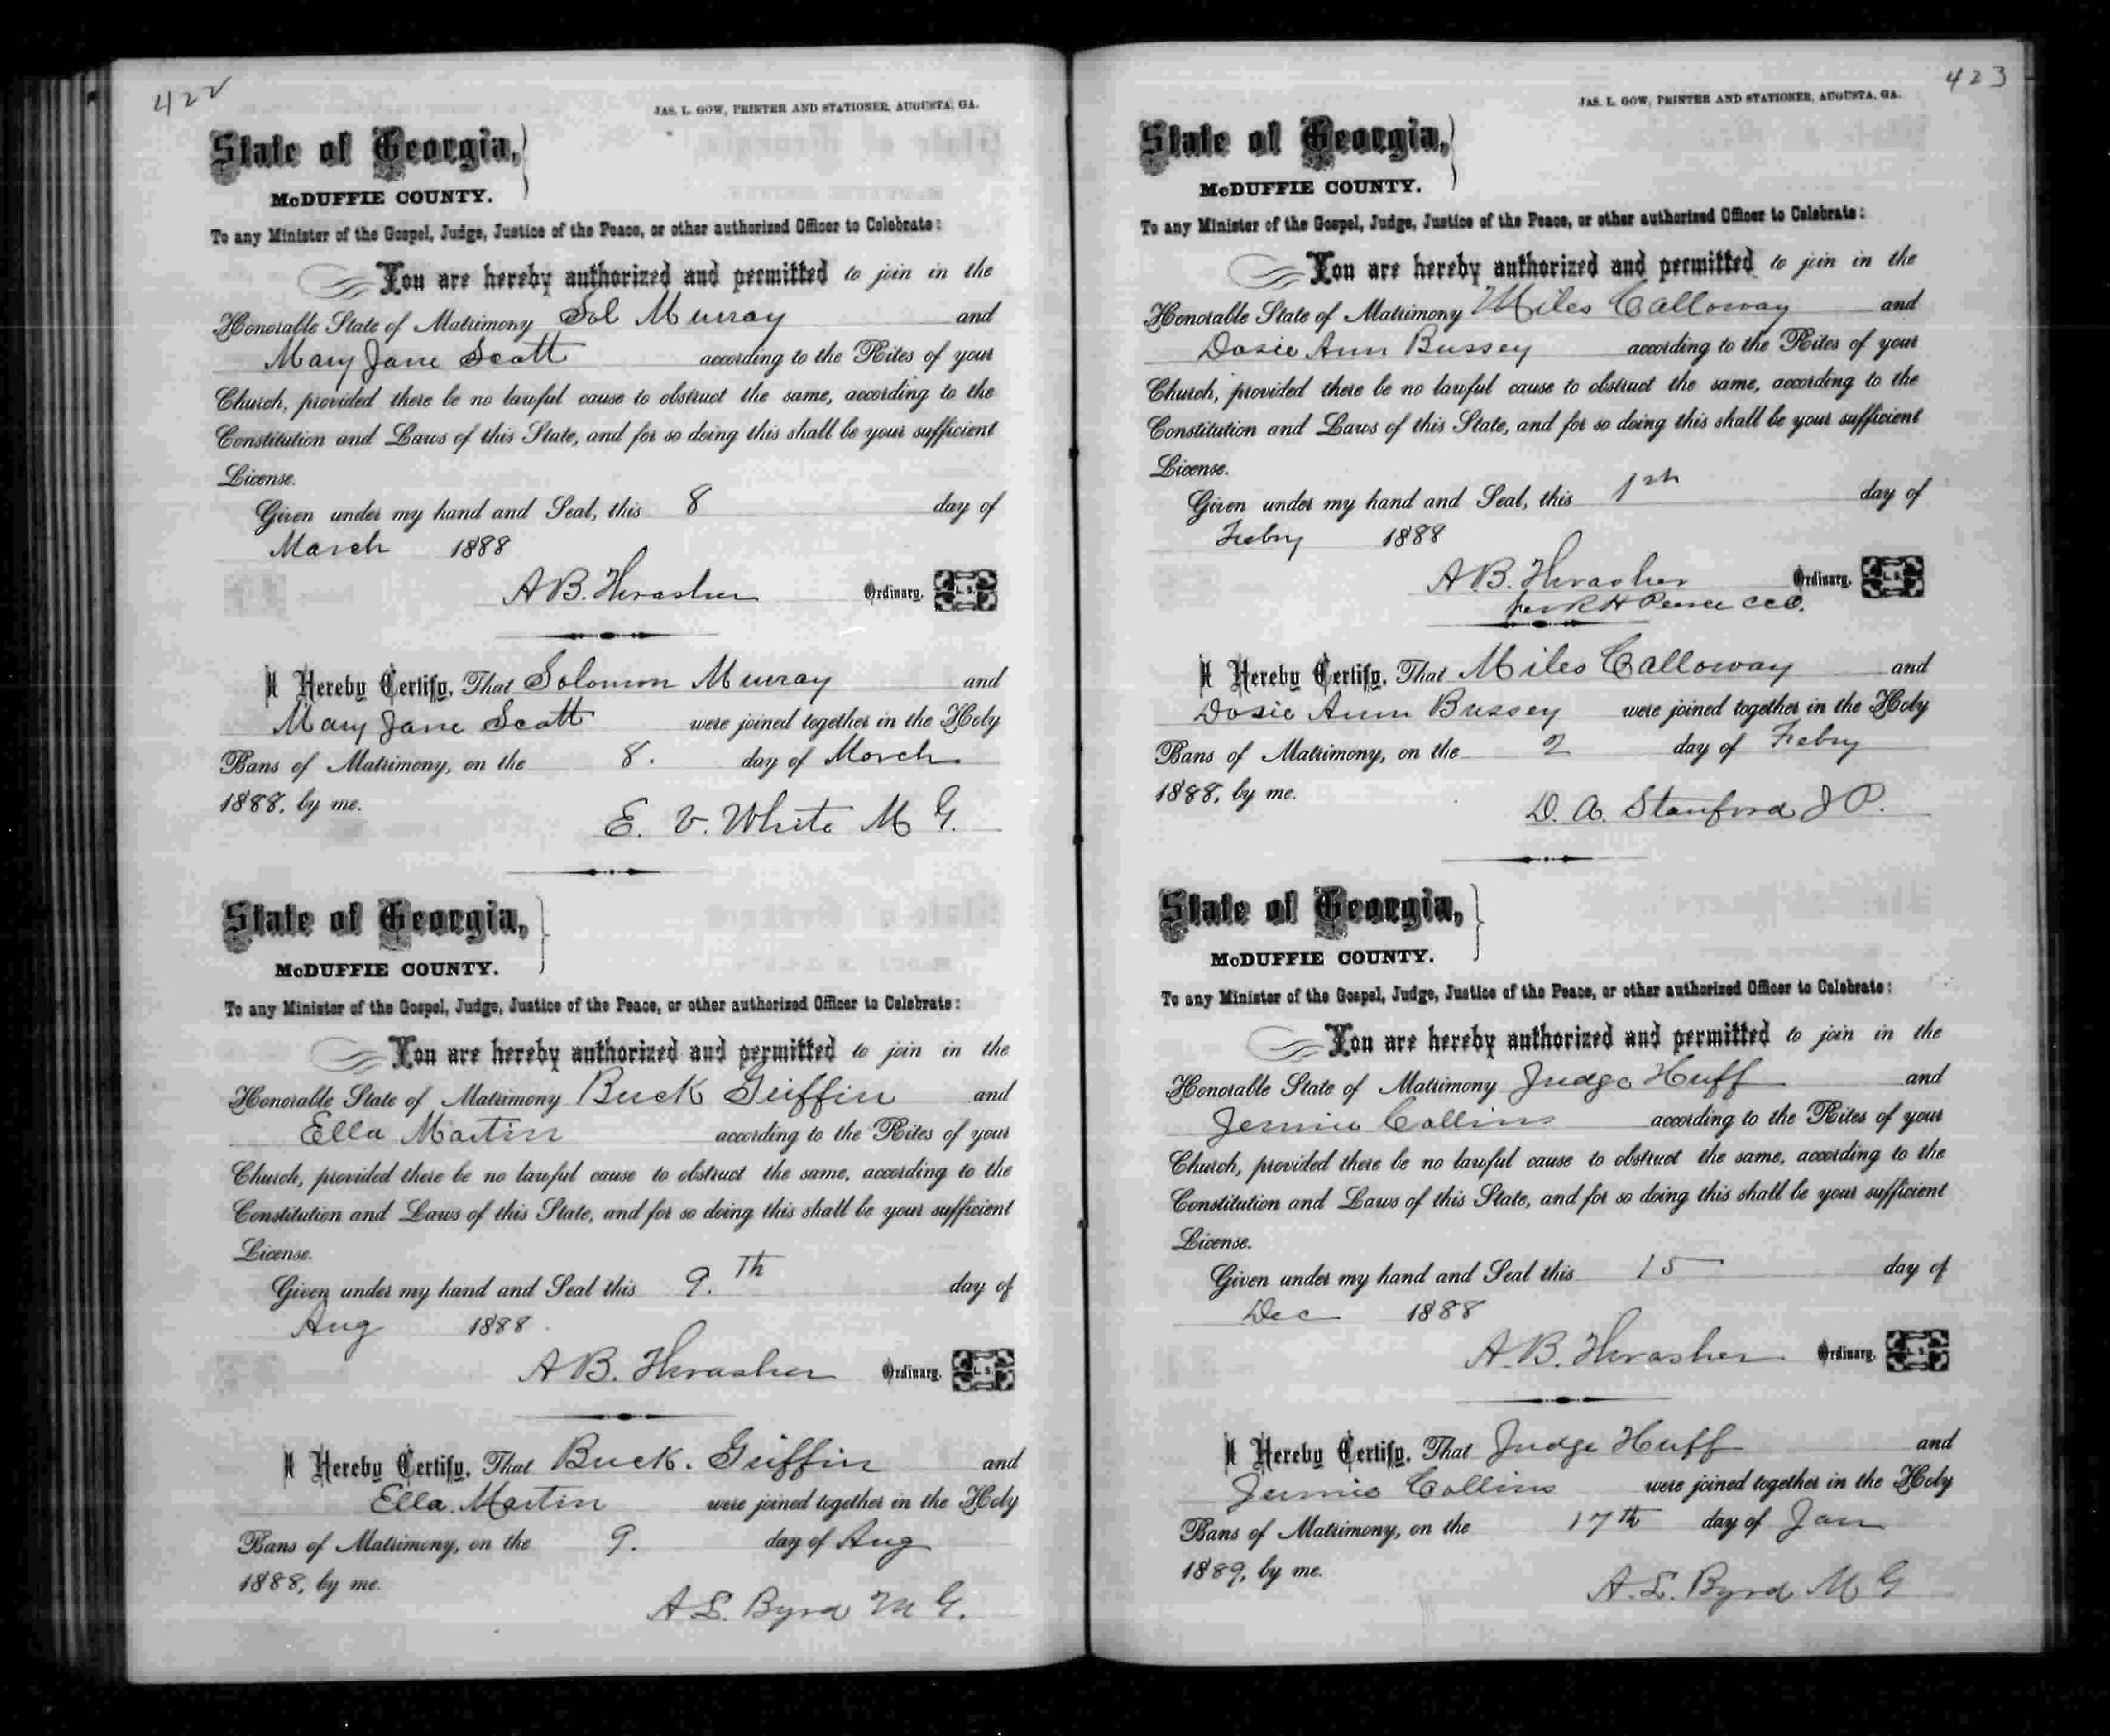 422
JAS. L. GOW, PRINTER AND STATIONER, AUGUSTA, GA.
State of Georgia,
McDUFFIE COUNTY.
To any Minister of the Gospel, Judge, Justice of the Peace, or other authorized Officer to Celebrate:
You are hereby authorized and permitted to join in the
Honorable State of Matrimony Sol Murray and
Mary Jane Scott according to the Rites of your
Church, provided there be no lawful cause to obstruct the same, according to the
Constitution and Laws of this State, and for so doing this shall be your sufficient
License.
Given under my hand and Seal, this 8 day of
March 1888
A B. Thrasher Ordinary. L. S.
I Hereby Certify, That Solomon Murray and
Mary Jane Scott were joined together in the Holy
Bans of Matrimony, on the 8. day of March
1888, by me.
E. V. White M G.
State of Georgia,
McDUFFIE COUNTY.
To any Minister of the Gospel, Judge, Justice of the Peace, or other authorized Officer to Celebrate:
You are hereby authorized and permitted to join in the
Honorable State of Matrimony Buck Griffin and
Ella Martin according to the Rites of your
Church, provided there be no lawful cause to obstruct the same, according to the
Constitution and Laws of this State, and for so doing this shall be your sufficient
License.
Given under my hand and Seal this 9.th day of
Aug 1888
A B. Thrasher Ordinary. L. S.
I Hereby Certify, That Buck. Griffin and
Ella Martin were joined together in the Holy
Bans of Matrimony, on the 9. day of Aug
1888, by me.
A L. Byrd M G.
423
JAS. L. GOW, PRINTER AND STATIONER, AUGUSTA, GA.
State of Georgia,
McDUFFIE COUNTY.
To any Minister of the Gospel, Judge, Justice of the Peace, or other authorized Officer to Celebrate:
You are hereby authorized and permitted to join in the
Honorable State of Matrimony Miles Calloway and
Dosie Ann Bussey according to the Rites of your
Church, provided there be no lawful cause to obstruct the same, according to the
Constitution and Laws of this State, and for so doing this shall be your sufficient
License.
Given under my hand and Seal, this 1st day of
Febry 1888
A B. Thrasher Ordinary. L. S.
per R H Pearce CCO.
I Hereby Certify, That Miles Calloway and
Dosie Ann Bussey were joined together in the Holy
Bans of Matrimony, on the 2 day of Febry
1888, by me.
D. A. Stanford J P.
State of Georgia,
McDUFFIE COUNTY.
To any Minister of the Gospel, Judge, Justice of the Peace, or other authorized Officer to Celebrate:
You are hereby authorized and permitted to join in the
Honorable State of Matrimony Judge Huff and
Jennie Collins according to the Rites of your
Church, provided there be no lawful cause to obstruct the same, according to the
Constitution and Laws of this State, and for so doing this shall be your sufficient
License.
Given under my hand and Seal this 15 day of
Dec 1888
A. B. Thrasher Ordinary. L. S.
I Hereby Certify, That Judge Huff and
Jennie Collins were joined together in the Holy
Bans of Matrimony, on the 17th day of Jan
1889, by me.
A. L. Byrd M G